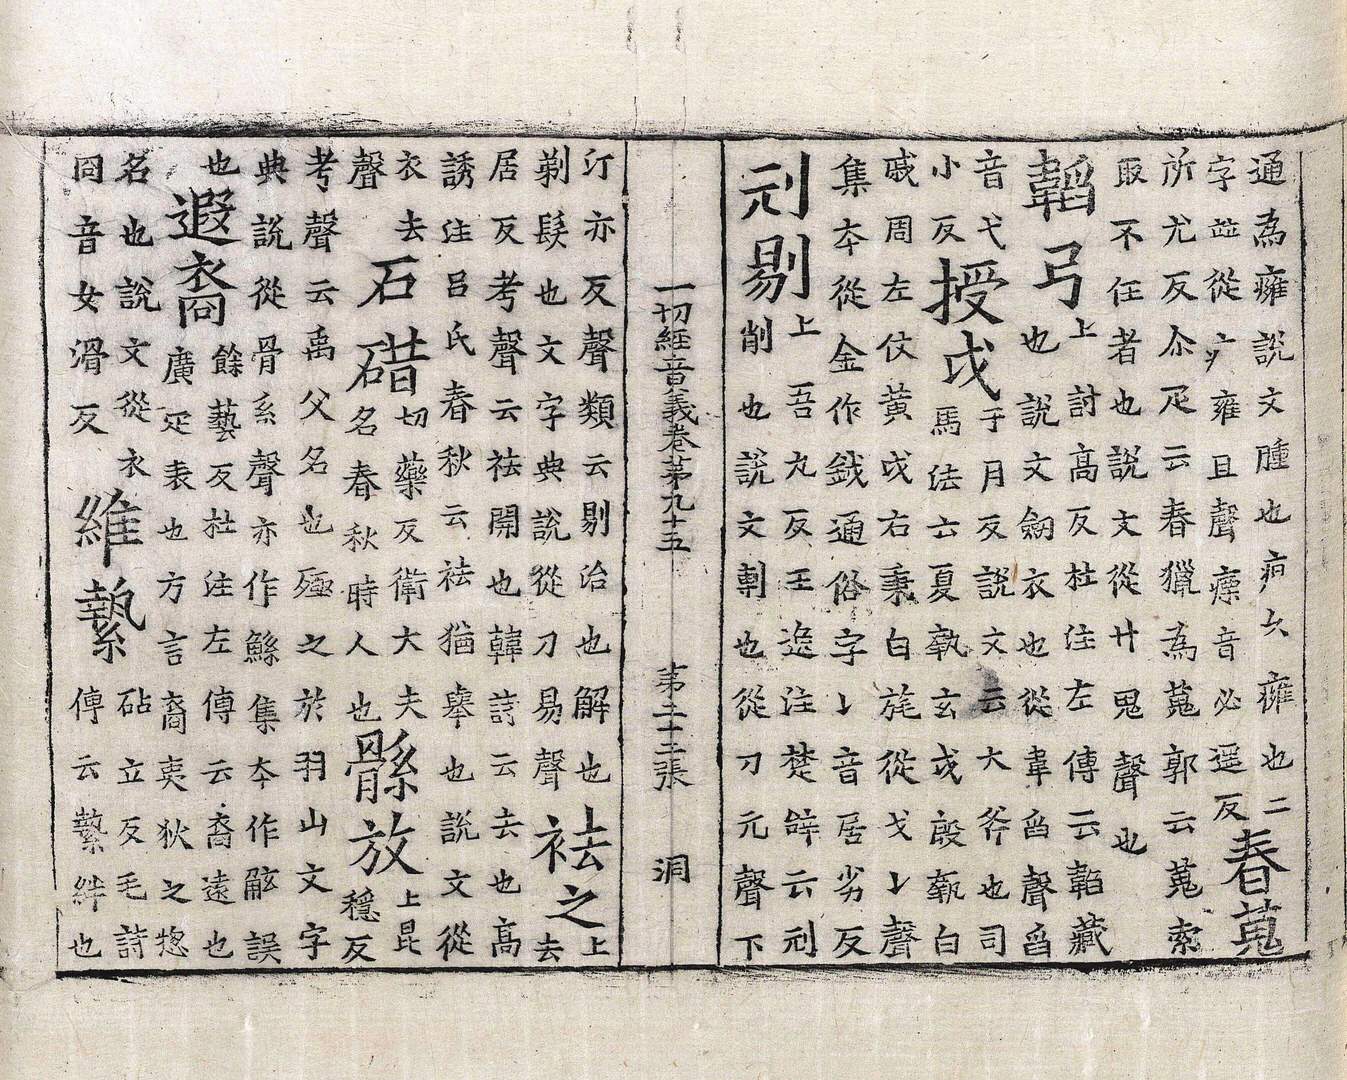 通爲癰說文腫也疨六癰也二
字並從疒雍且聲瘭音必遥反
春蒐
所尤反尒疋云春獵爲蒐郭云蒐索
取不任者也說文從艹鬼聲也
韜弓
上討高反杜注左傳云韜藏
也說文劒衣也從韋舀聲舀
音弋
小反
授戉
于月反說文云大斧也司
馬法云夏執玄戉殷執白
戚周左仗黃戉右秉白旄從戈𠄌聲
集夲從金作鉞通俗字𠄌音居劣反
刓剔
上吾丸反王逸注楚辝云刓
削也說文剸也從刀元聲下
一切經音義卷第九十五 第二十二張 洞
汀亦反聲類云剔治也解也
剃䯼也文字典說從刀易聲
祛之
上去
居反考聲云祛開也韓詩云去也高
誘注呂氏春秋云祛猶舉也說文從
衣去
聲
石碏
切藥反衛大夫
名春秋時人也
鯀放
上昆
穩反
考聲云禹父名也殛之於羽山文字
典說從骨系聲亦作鯀集夲作骸誤
也
遐裔
餘藝反杜注左傳云裔遠也
廣疋表也方言裔夷狄之惣
名也說文從衣
㕯音女滑反
維縶
砧立反毛詩
傳云縶絆也